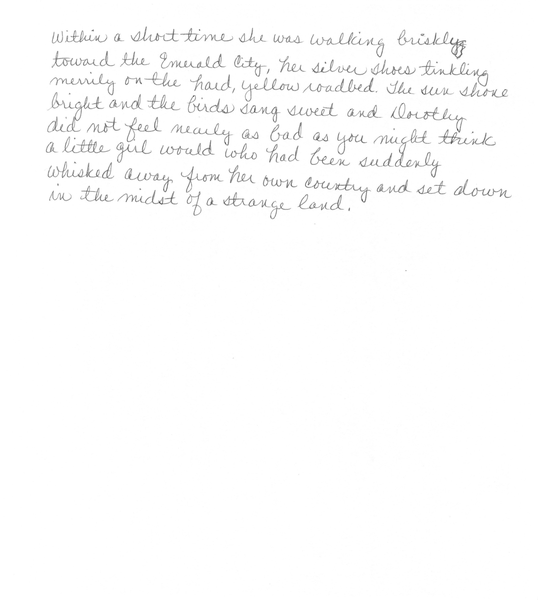 Within a short time she was walking briskly
toward the Emerald City, her silver shoes tinkling
merrily on the hard, yellow roadbed. The sun shone
bright and the birds sang sweet and Dorothy
did not feel nearly as bad as you might think
a little girl would who had been suddenly
whisked away from her own country and set down
in the midst of a strange land.